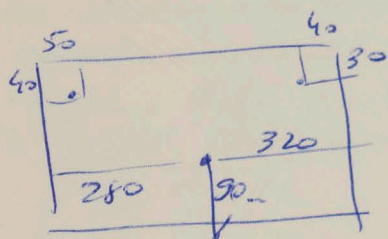 50 40
40 30
320
280 90